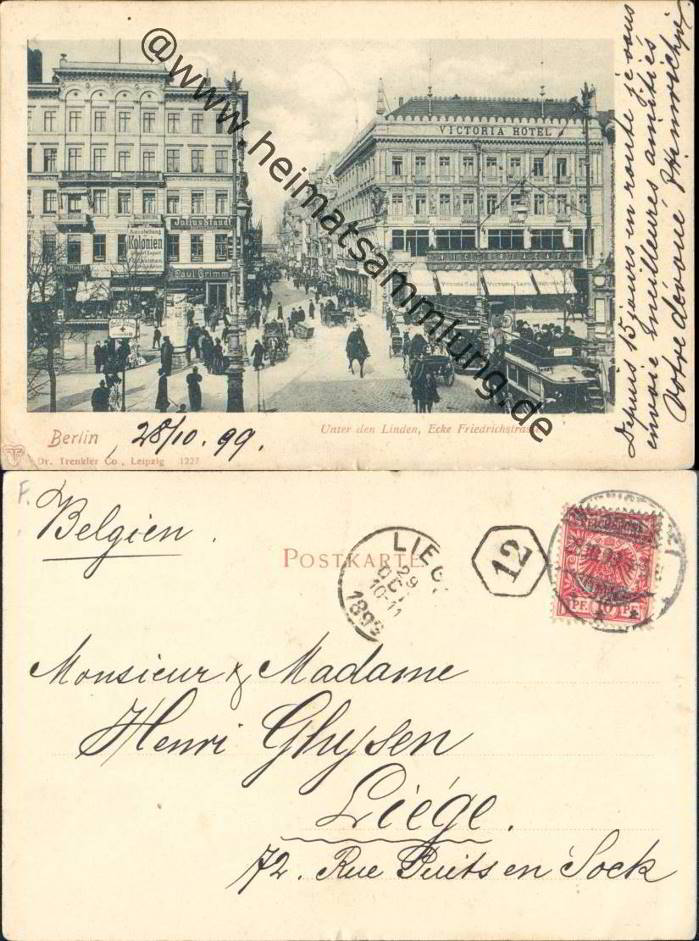 @www.heimatsammlung.de
VICTORIA HOTEL
Ausstellung
Kolonien
Paul Grimm
Depuis 15 jours en route je vous
envoie meilleures amitiés
Votre dévoué
Berlin
28/10. 99.
Unter den Linden, Ecke Friedrichstrasse
Dr. Trenkler Co., Leipzig 1227
F.
Belgien.
POSTKARTE
LIEGE
29
OCT
10-11
1899
12
PF. 10 PF.
Monsieur & Madame
Henri Ghysen
Liége.
72. Rue Puits en Sock